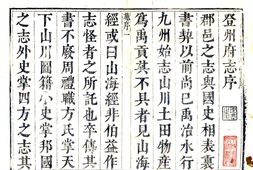 登州府志序
郡邑之志與國史相表裏
書契以前尚已禹治水行
九州始志山川土田物產
爲禹貢其不具者見山海
經或曰山海經非伯益作
志怪者之所託也卒傳其
書不廢周禮職方氏掌天
下山川圖籍小史掌邦國
之志外史掌四方之志其